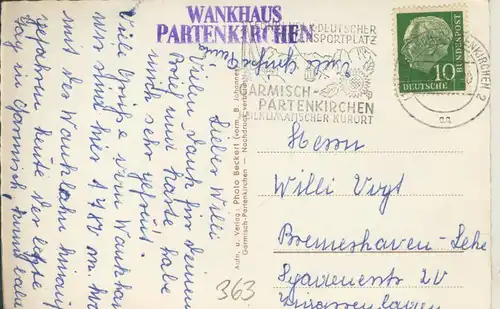 WANKHAUS
PARTENKIRCHEN
DEUTSCHER
SPORTPLATZ
GARMISCH-
PARTENKIRCHEN
HEILKLIMATISCHER KURORT
PARTENKIRCHEN 2
10
DEUTSCHE
BUNDESPOST
Lieber Willi
Vielen Dank für deinen
Brief und Karte, habe
mich sehr gefreut.
Viele Grüße vom Wankhaus
wir sind hier 1780 m.
mit der Wankbahn hinauf
gefahren heute der letzte
Tag in Garmisch,
viele Grüße
Aufn. u. Verlag: Photo Beckert (vorm. B. Johannes)
Garmisch-Partenkirchen - Nachdruck verboten
363
Herrn
Willi Vogt
Bremerhaven-Lehe